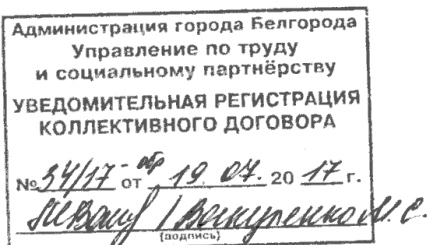 Администрация города Белгорода
Управление по труду
и социальному партнёрству
УВЕДОМИТЕЛЬНАЯ РЕГИСТРАЦИЯ
КОЛЛЕКТИВНОГО ДОГОВОРА
№ 34/17-обр от 19.07. 2017 г.
(подпись)